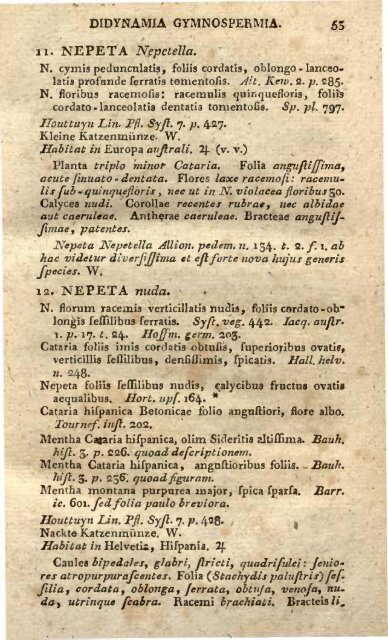 DIDYNAMIA GYMNOSPERMIA. 53
11. NEPETA Nepetella.
N. cymis pedunculatis, foliis cordatis, oblongo-lanceo-
latis profunde serratis tomentosis. Ait. Kew. 2. p. 285.
N. floribus racemosis: racemulis quinquefloris, foliis
cordato-lanceolatis dentatis tomentosis. Sp. pl. 797.
Houttuyn Lin. Pfl. Syst. 7. p. 427.
Kleine Katzenmünze. W.
Habitat in Europa australi. ♃ (v. v.)
Planta triplo minor Cataria. Folia angustissima,
acute sinuato-dentata. Flores laxe racemosi: racemu-
lis sub-quinquefloris, nec ut in N. violacea floribus 30.
Calyces nudi. Corollae recentes rubrae, nec albidae
aut caeruleae. Antherae caeruleae. Bracteae angustis-
simae, patentes.
Nepeta Nepetella Allion. pedem. n. 134. t. 2. f. 1, ab
hac videtur diversissima et est forte nova hujus generis
species. W.
12. NEPETA nuda.
N. florum racemis verticillatis nudis, foliis cordato-ob-
longis sessilibus serratis. Syst. veg. 442. Iacq. austr.
1. p. 17. t. 24. Hoffm. germ. 203.
Cataria foliis imis cordatis obtusis, superioribus ovatis,
verticillis sessilibus, densissimis, spicatis. Hall. helv.
n. 248.
Nepeta foliis sessilibus nudis, calycibus fructus ovatis
aequalibus. Hort. ups. 164. *
Cataria hispanica Betonicae folio angustiori, flore albo.
Tournef. inst. 202.
Mentha Cataria hispanica, olim Sideritis altissima. Bauh.
hist. 3. p. 226. quoad descriptionem.
Mentha Cataria hispanica, angustioribus foliis. Bauh.
hist. 3. p. 236. quoad figuram.
Mentha montana purpurea major, spica sparsa. Barr.
ic. 601. sed folia paulo breviora.
Houttuyn Lin. Pfl. Syst. 7. p. 428.
Nackte Katzenmünze. W.
Habitat in Helvetia, Hispania. ♃
Caules bipedales, glabri, stricti, quadrisulci: senio-
res atropurpurascentes. Folia (Stachydis palustris) ses-
silia, cordata, oblonga, serrata, obtusa, venosa, nu-
da, utrinque scabra. Racemi brachiati. Bracteis li-